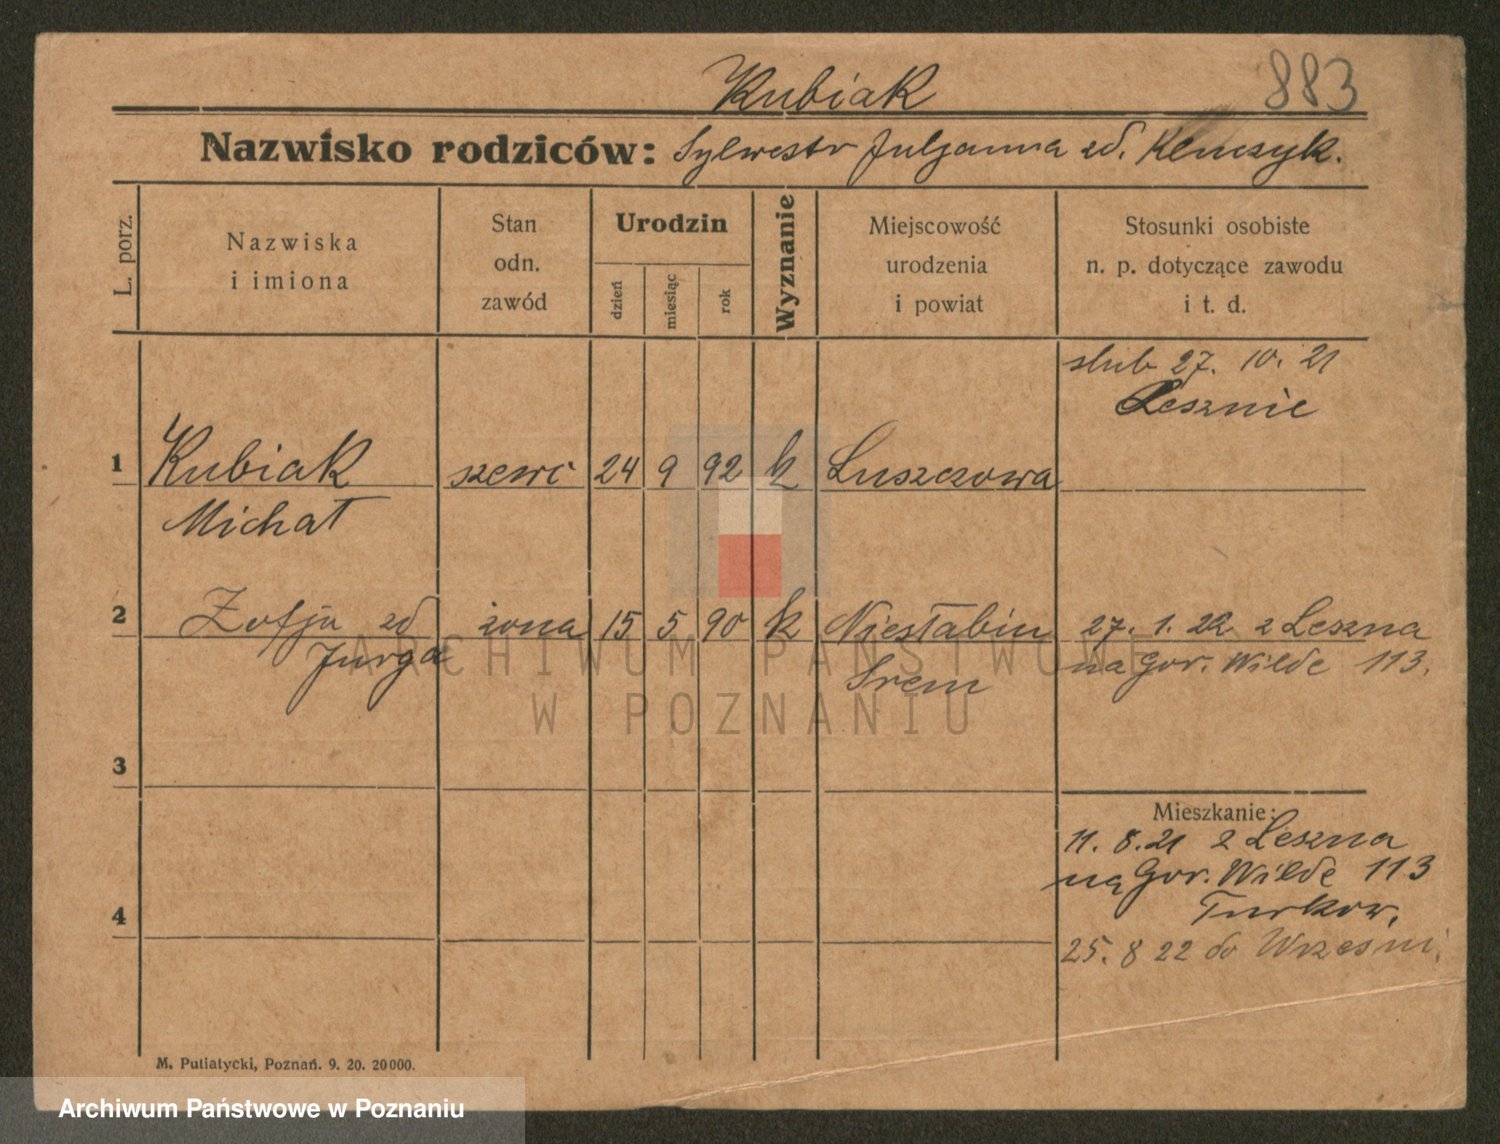 883
Kubiak
Nazwisko rodziców: Sylwestr Julganna zd. Klemczyk.
L. porz.
Nazwiska i imiona
Stan odn. zawód
Urodzin
dzień
miesiąc
rok
Wyznanie
Miejscowość urodzenia i powiat
Stosunki osobiste n. p. dotyczące zawodu i t. d.
ślub 27. 10. 21
Lesznie
1 Kubiak szewc 24 9 92 k Łuszczowa
Michał
2 Zofja zd żona 15 5 90 k Niesłabin 27. 1. 22 z Leszna
Jurga Srem na Gór. Wilde 113.
3
Mieszkanie:
11. 8. 21 z Leszna
na Gór. Wilde 113
4 Turkow.
25. 8 22 do Wrześni.
M. Putiatycki, Poznań. 9. 20. 20000.
ARCHIWUM PAŃSTWOWE
W POZNANIU
Archiwum Państwowe w Poznaniu